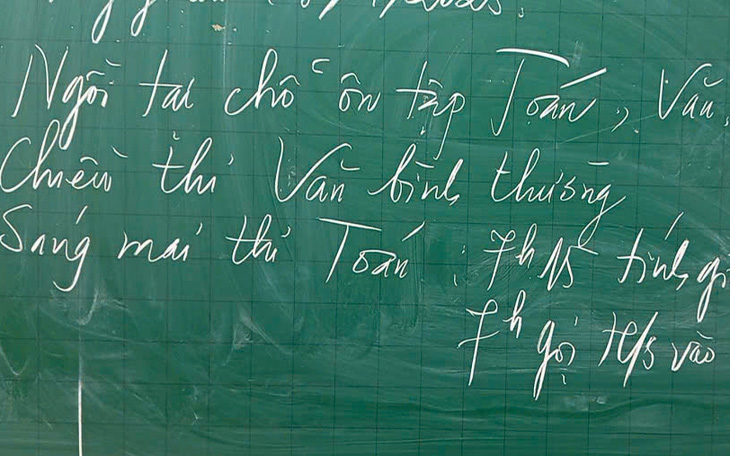 Ngồi tại chỗ ôn tập Toán, Văn,
Chiều thi Văn bình thường
Sáng mai thi Toán: 7h15 tính gi
7h gọi H/s vào